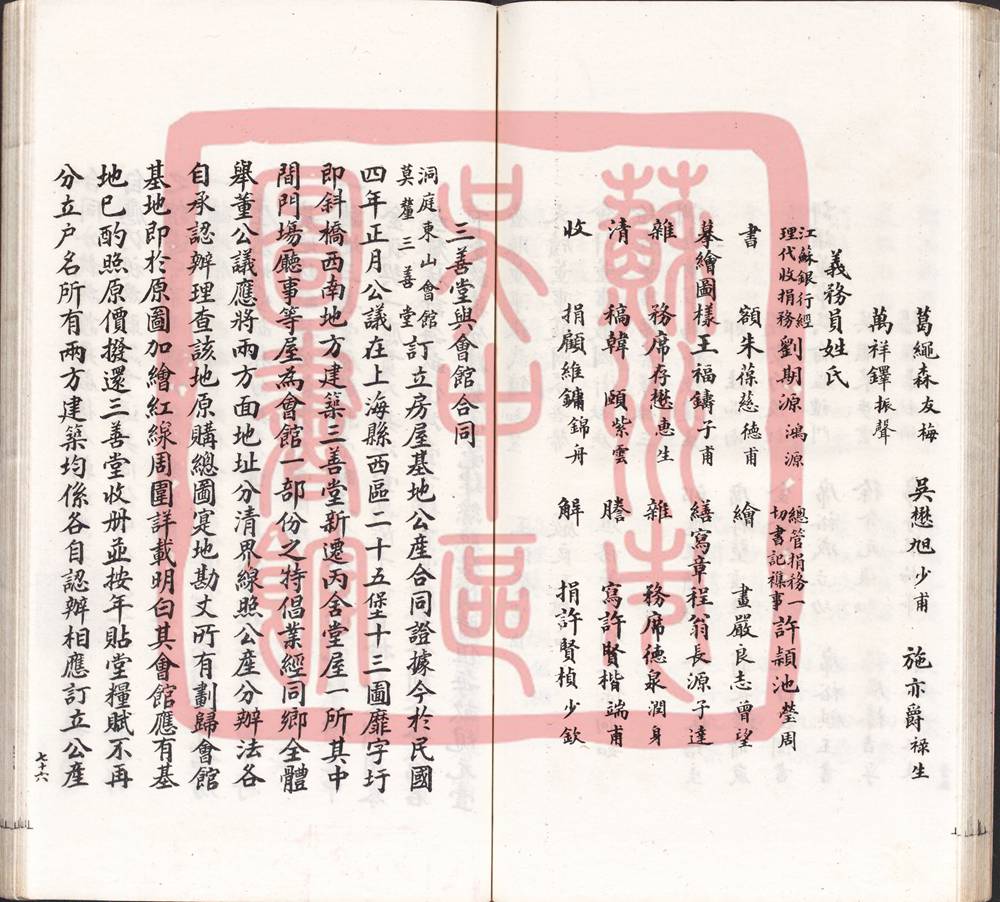 葛繩森友梅　吳懋旭少甫　施亦爵祿生
萬祥鐸振聲
義務員姓氏
江蘇銀行經理代收捐務劉期源鴻源　總管捐務一切書記襍事許頴池瑩周
書額朱葆慈德甫　繪畫嚴良志曾望
摹繪圖樣王福鑄子甫　繕寫章程翁長源子達
雜務席存懋惠生　雜務席德泉潤身
清稿韓頤紫雲　謄寫許賢楷端甫
收捐顧維鏞錦舟　解捐許賢楨少欽
三善堂與會館合同
洞庭東山會館莫釐三善堂訂立房屋基地公產合同證據今於民國
四年正月公議在上海縣西區二十五堡十三圖靡字圩
即斜橋西南地方建築三善堂新遷丙舍堂屋一所其中
間門塲廳事等屋為會館一部份之特倡業經同鄉全體
舉董公議應將兩方面地址分清界線照公產分辦法各
自承認辦理查該地原購總圖寔地勘丈所有劃歸會館
基地即於原圖加繪紅線周圍詳載明白其會館應有基
地已酌照原價撥還三善堂收册並按年貼堂糧賦不再
分立户名所有兩方建築均係各自認辦相應訂立公產
七十六
蘇州市
吳中區
圖書館